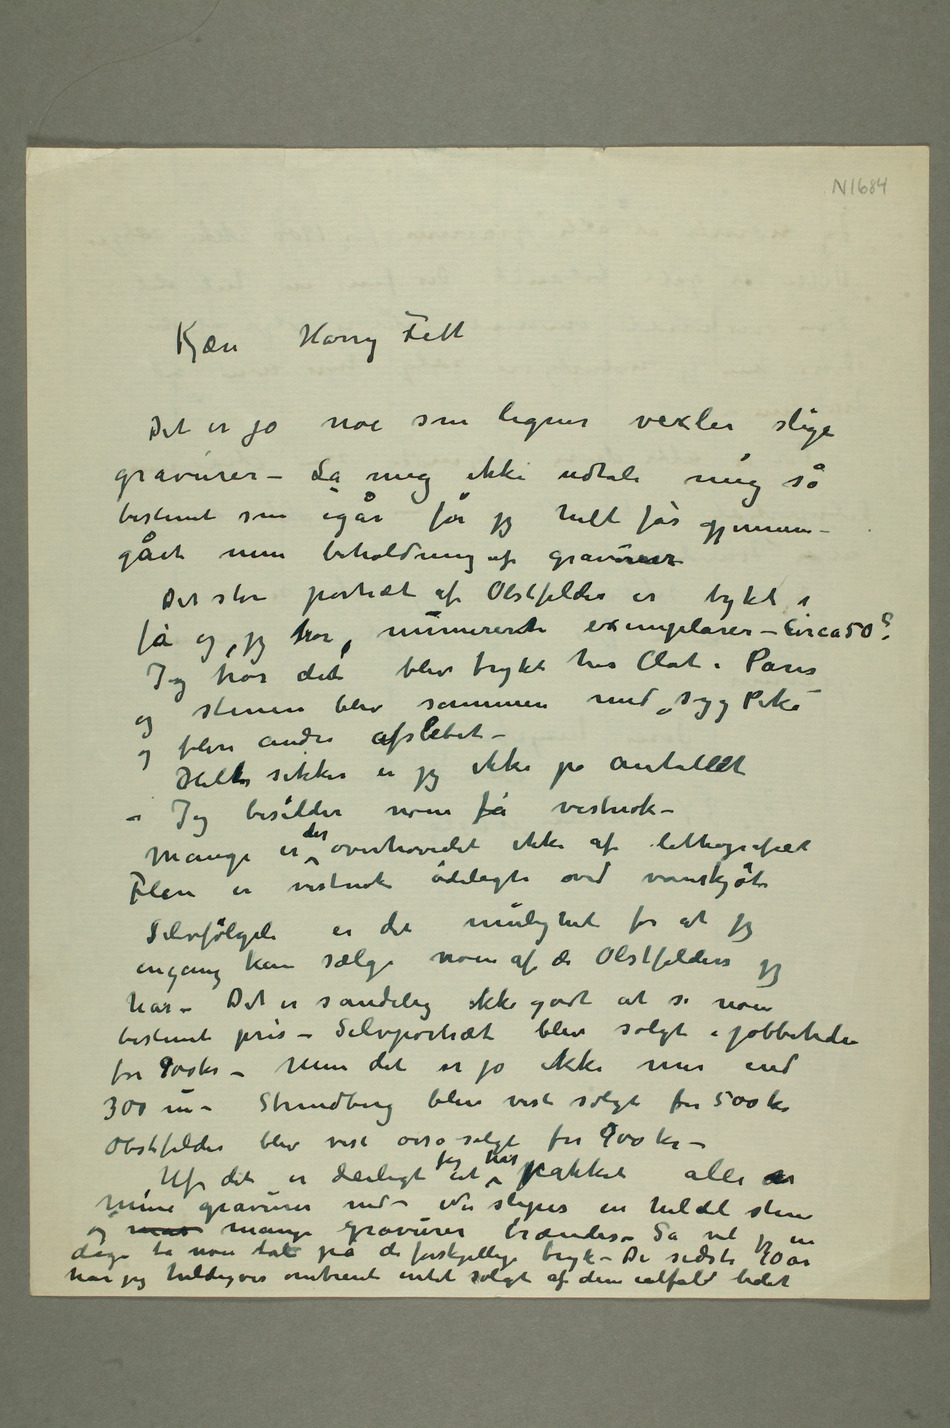 N1684
Kjære Harry Fett
Det er jo noe som ligner vexler slige
gravürer – La mig ikke udtale mig så
bestemt som igår før jeg helt får gjennem-
gået min beholdning af gravürer
Det store portræt af Obstfelder er trykt i
få og, jeg tror, nümmererte exemplarer – Circa 50?
Jeg tror det blev trykt hos Clot i Paris
og stenen blev sammen med „syg Pike"
og flere andre afslebet –
Helt sikker er jeg ikke på antallet
– Jeg besidder noen få vistnok –
Mange er der overhovedet ikke af lithografiet
Flere er vistnok ødelagte ved vanskjøt
Selvfølgeli er det mulighet for at jeg
engang kan sælge noen af de Obstfeldere jeg
har – Det er sandelig ikke godt at si noen
bestemt pris – Selvportræt blev solgt i jobbetiden
for 900 kr – Men det er jo ikke mer end
300 nu – Strindberg blev vist solgt for 500 kr
Obstfelder blev vist også solgt for 900 kr –
Uf, det er deiligt at jeg har pakket alle
mine gravürer ned – Nu slipes en heldel stene
og mange gravürer brændes – Så vil jeg en
dag ta noen tal på de forskjellige tryk – De sidste 20 år
har jeg heldigvis omtrent intet solgt af dem ialfald lidet